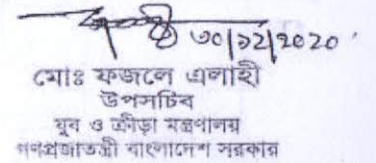 ৩০/১২/২০২০
মোঃ ফজলে এলাহী
উপসচিব
যুব ও ক্রীড়া মন্ত্রণালয়
গণপ্রজাতন্ত্রী বাংলাদেশ সরকার